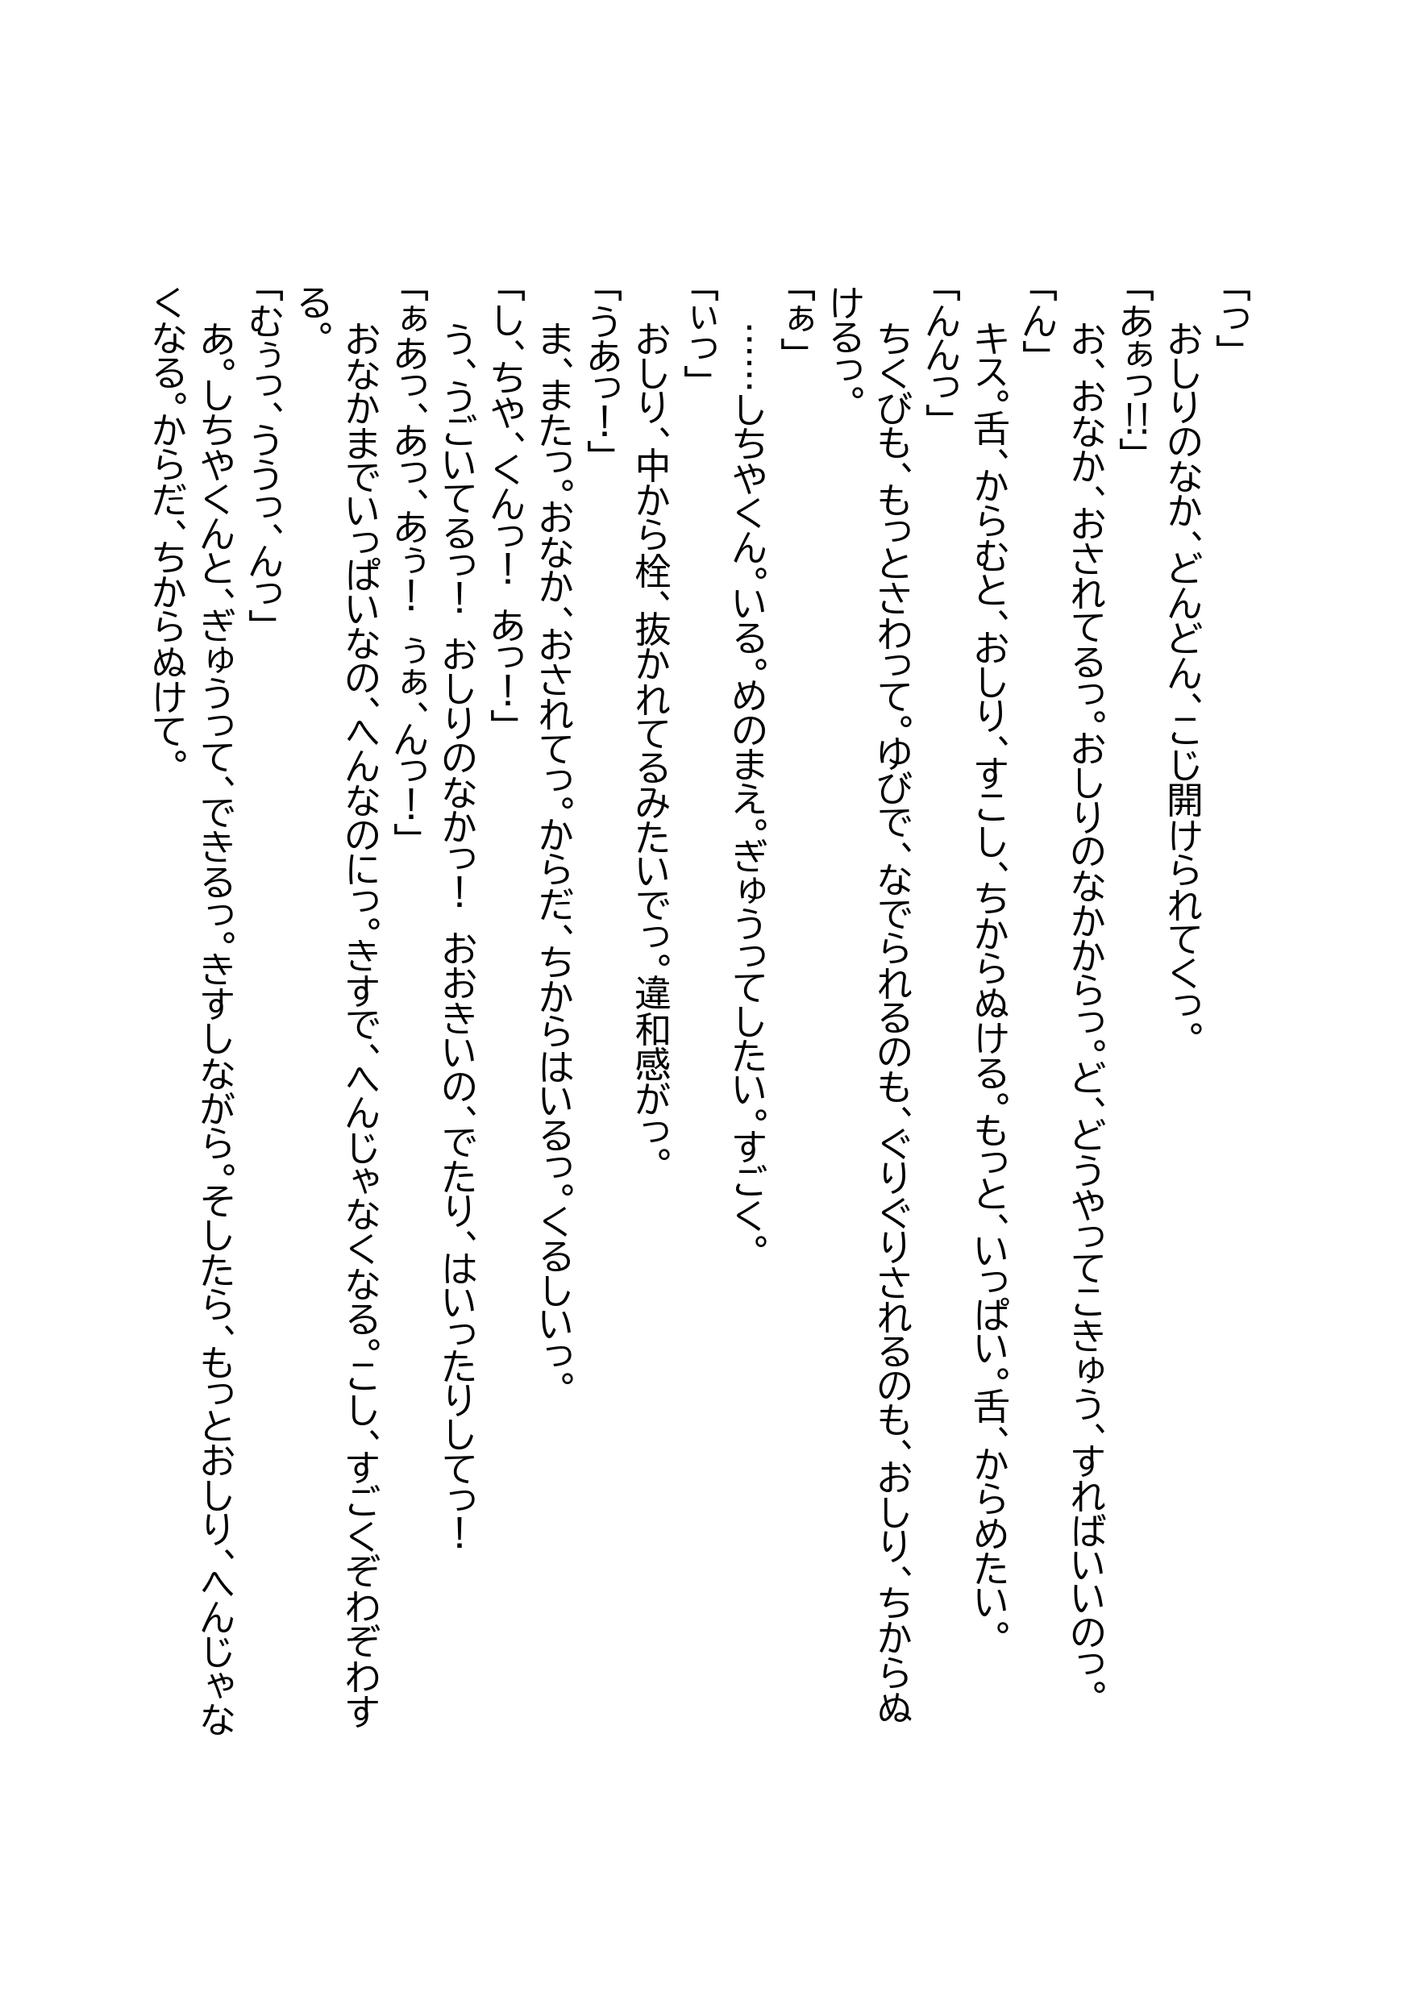 「っ」
おしりのなか、どんどん、こじ開けられてくっ。
「あぁっ!!」
お、おなか、おされてるっ。おしりのなかからっ。ど、どうやってこきゅう、すればいいのっ。
「ん」
キス。舌、からむと、おしり、すこし、ちからぬける。もっと、いっぱい。舌、からめたい。
「んんっ」
ちくびも、もっとさわって。ゆびで、なでられるのも、ぐりぐりされるのも、おしり、ちからぬ
けるっ。
「ぁ」
……しちやくん。いる。めのまえ。ぎゅうってしたい。すごく。
「ぃっ」
おしり、中から栓、抜かれてるみたいでっ。違和感がっ。
「うあっ！」
ま、またっ。おなか、おされてっ。からだ、ちからはいるっ。くるしいっ。
「し、ちや、くんっ！　あっ！」
う、うごいてるっ！　おしりのなかっ！　おおきいの、でたり、はいったりしてっ！
「ぁあっ、あっ、あぅ！　ぅぁ、んっ！」
おなかまでいっぱいなの、へんなのにっ。きすで、へんじゃなくなる。こし、すごくぞわぞわす
る。
「むぅっ、ううっ、んっ」
あ。しちやくんと、ぎゅうって、できるっ。きすしながら。そしたら、もっとおしり、へんじゃな
くなる。からだ、ちからぬけて。